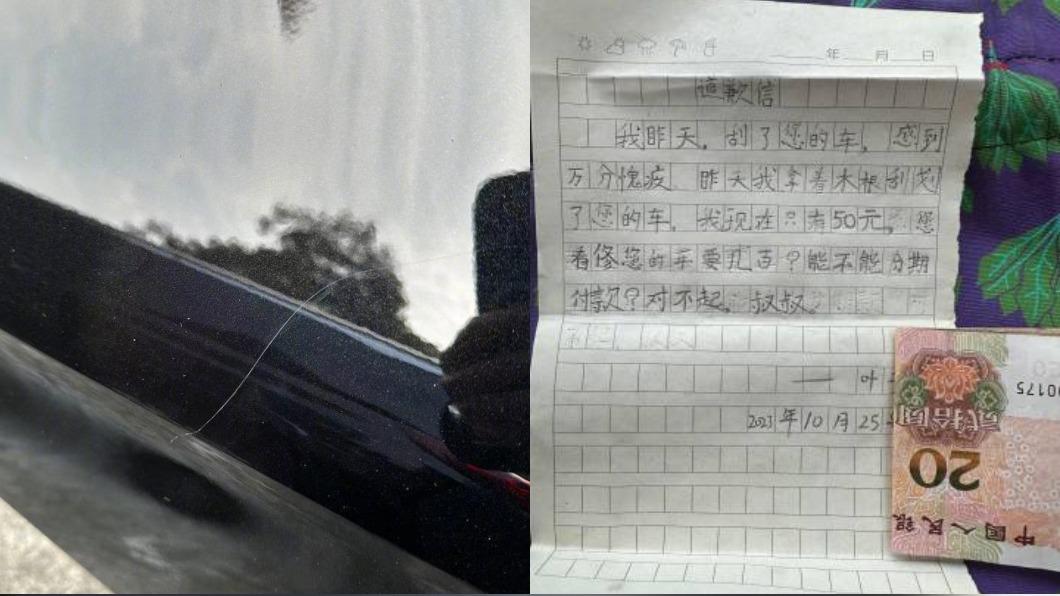 年 月 日
道歉信
我昨天。刮了您的车,感到
万分愧疫 昨天我拿着木根刮划
了您的车。我现在只有50元。您
看修您的车要几百?能不能分期
付款?对不起。叔叔。
— 叶
2023年10月25
00175
贰拾圆
20
中国人民银